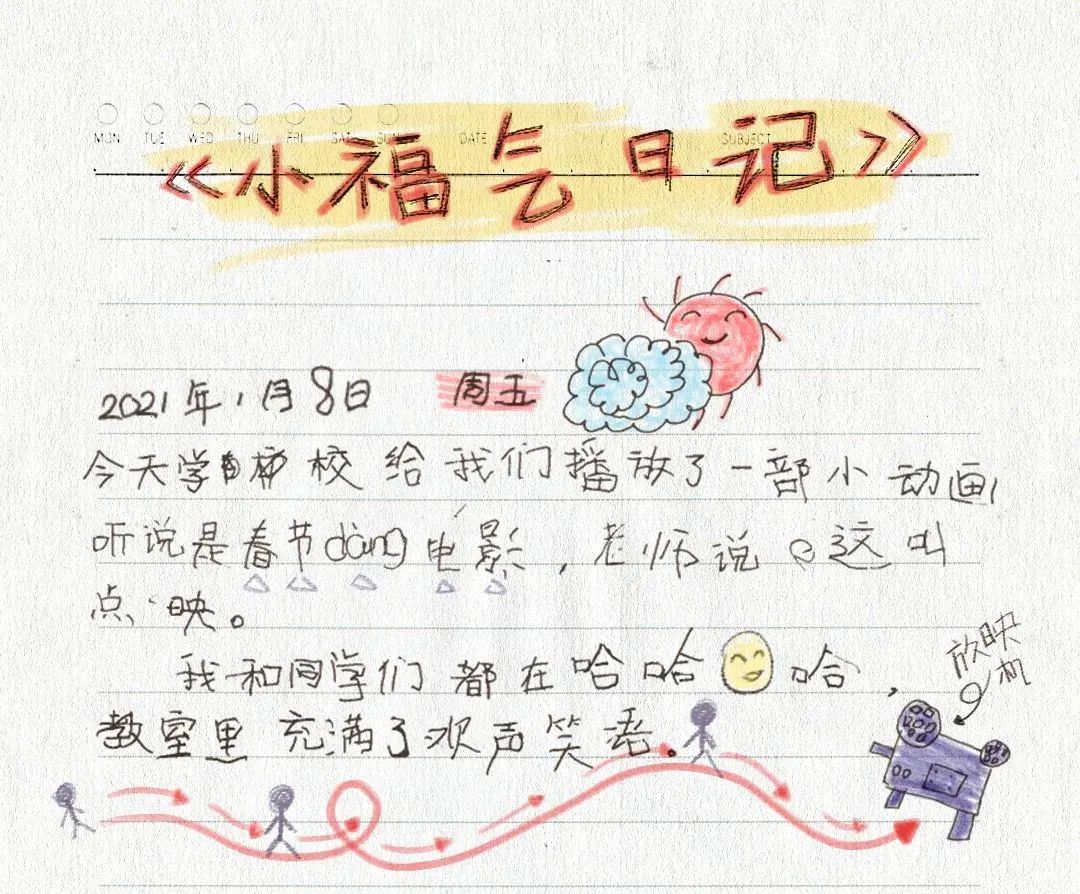 MON TUE WED THU FRI SAT SUN DATE SUBJECT
《小福气日记》
2021年1月8日 周五
今天学校给我们播放了一部小动画,
听说是春节dàng电影,老师说这叫
点映。
我和同学们都在哈哈哈,
教室里充满了欢声笑语.
放映
机